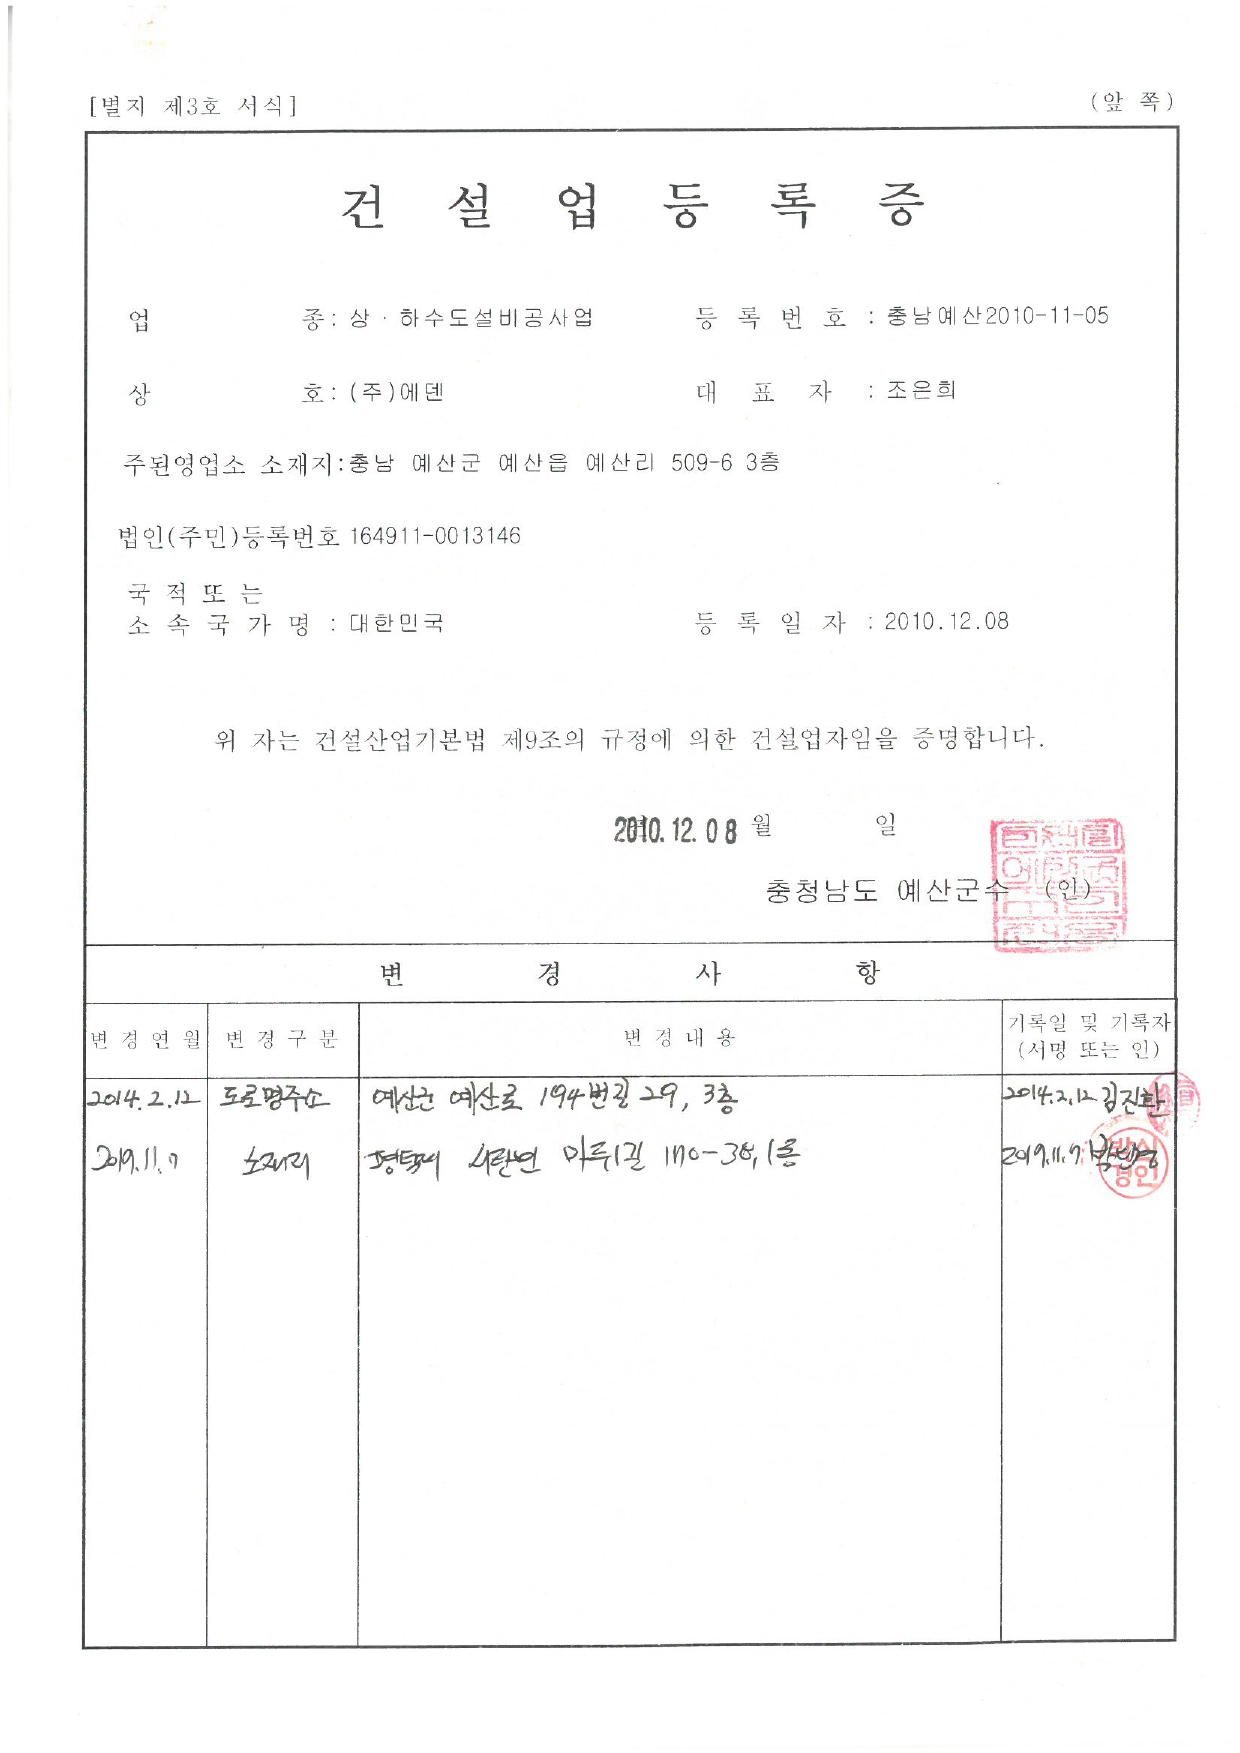 [별지 제3호 서식]
(앞 쪽)
건 설 업 등 록 증
업 종: 상·하수도설비공사업 등 록 번 호 : 충남예산2010-11-05
상 호: (주)에덴 대 표 자 : 조은희
주된영업소 소재지:충남 예산군 예산읍 예산리 509-6 3층
법인(주민)등록번호 164911-0013146
국 적 또 는
소 속 국 가 명 : 대한민국 등 록 일 자 : 2010.12.08
위 자는 건설산업기본법 제9조의 규정에 의한 건설업자임을 증명합니다.
2010.12.08 월 일
충청남도 예산군수 (인)
변 경 사 항
변 경 연 월 변 경 구 분 변 경 내 용 기록일 및 기록자
(서명 또는 인)
2014.2.12 도로명주소 예산군 예산로 194번길 29, 3층 2014.2.12 김진환
2019.11.7 소재지 평택시 마루1길 170-38, 1층 2019.11.7